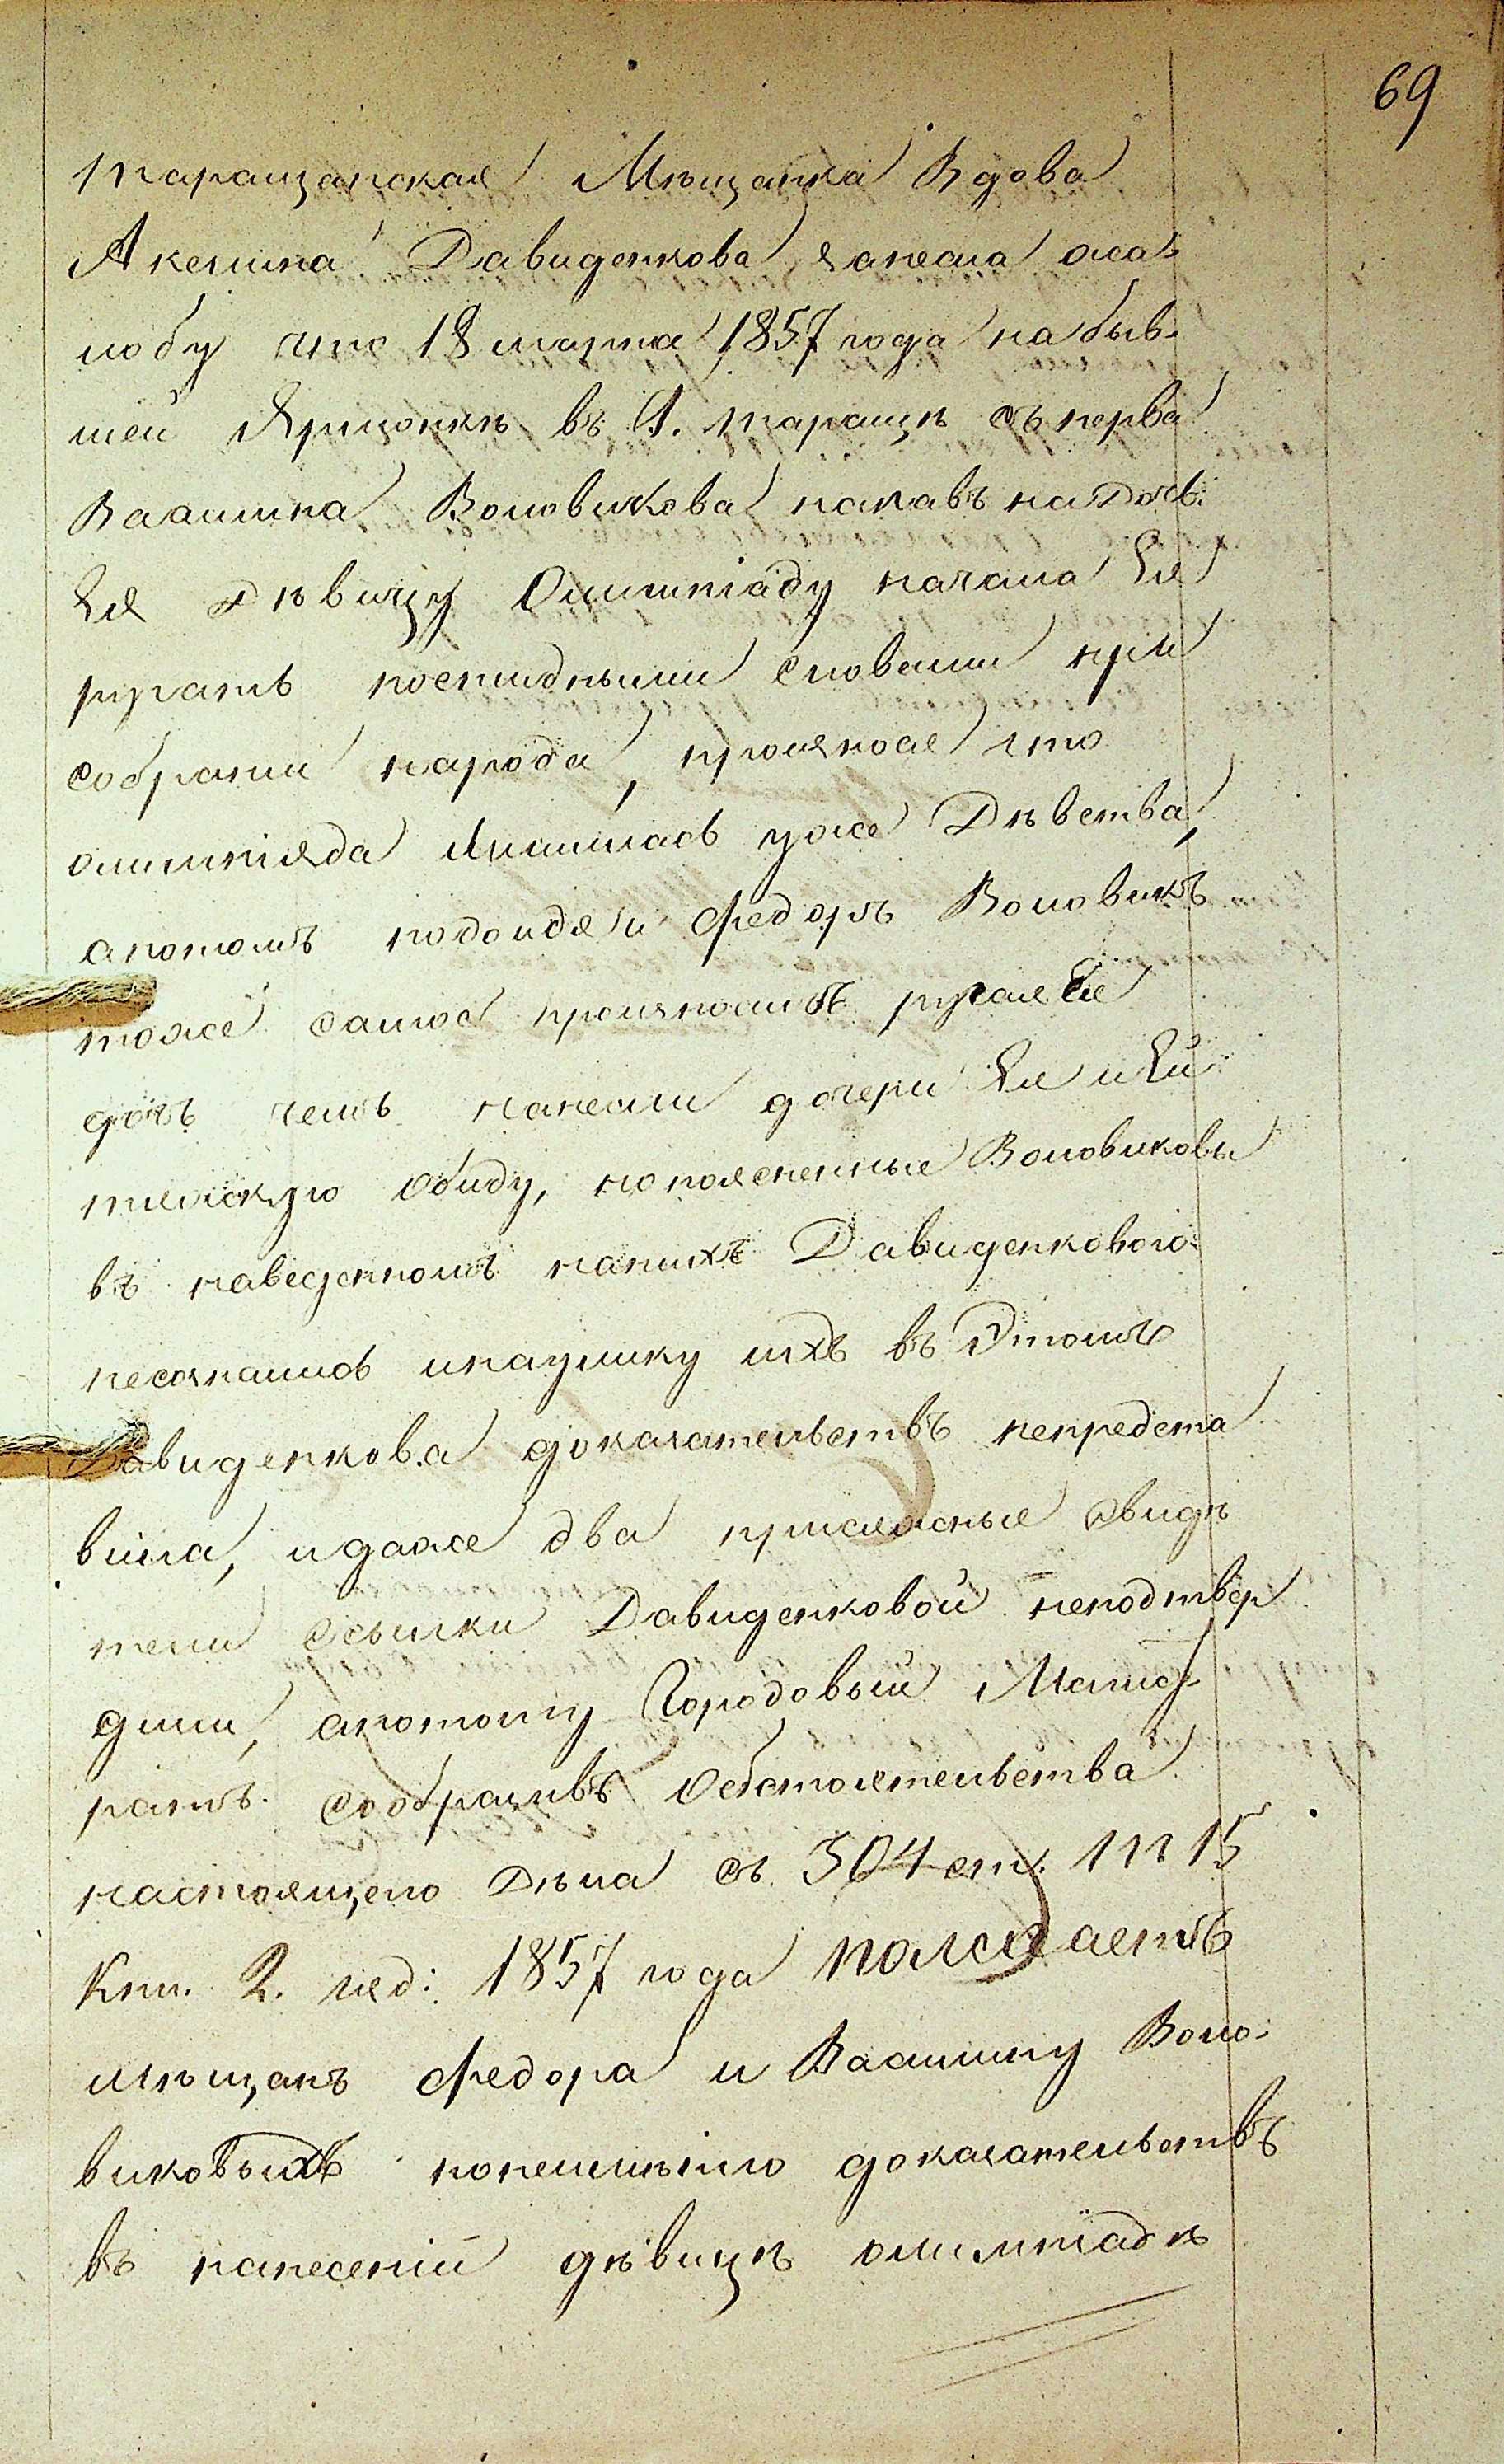 69
Таращанская Мещанка Вдова
Акелина Давиденкова занесла жа-
лобу что 18 марта 1857 года на быв-
шей Ярмонкѣ въ Г. Таращѣ съ перва
Васлина Воловикова напавъ на дочь
Ея Дѣвицу Олимпіаду начала Ея
ругать постидными словами при
собраніи народа, произнося что
олимпіяда лишилась уже Дѣвства,
апотомъ подойдя и Федоръ Воловикъ
тоже самое произносилъ ругая Ея
дочь чемъ нанесли дочери Ея и Ей
тяжскую Обиду, но поясненные Воловиковы
въ наведенномъ наних Давиденковою
несознались инаулику ихъ въ Этомъ
Давиденкова доказательствъ непредста
вила, идаже два присяжные свидѣ
тели ссылки Давиденковой неподтвер
дили, апотому Городовый Магист
ратъ сообразивъ Обстоятельства
настоящего Дѣла съ 304 ст. т 15
Кни. 2. изд: 1857 года полагаетъ
мѣщанъ Федора и Васлину Воло-
виковыхъ понеимѣнію доказательствъ
въ нанесеніи дѣвицѣ олимпіадѣ